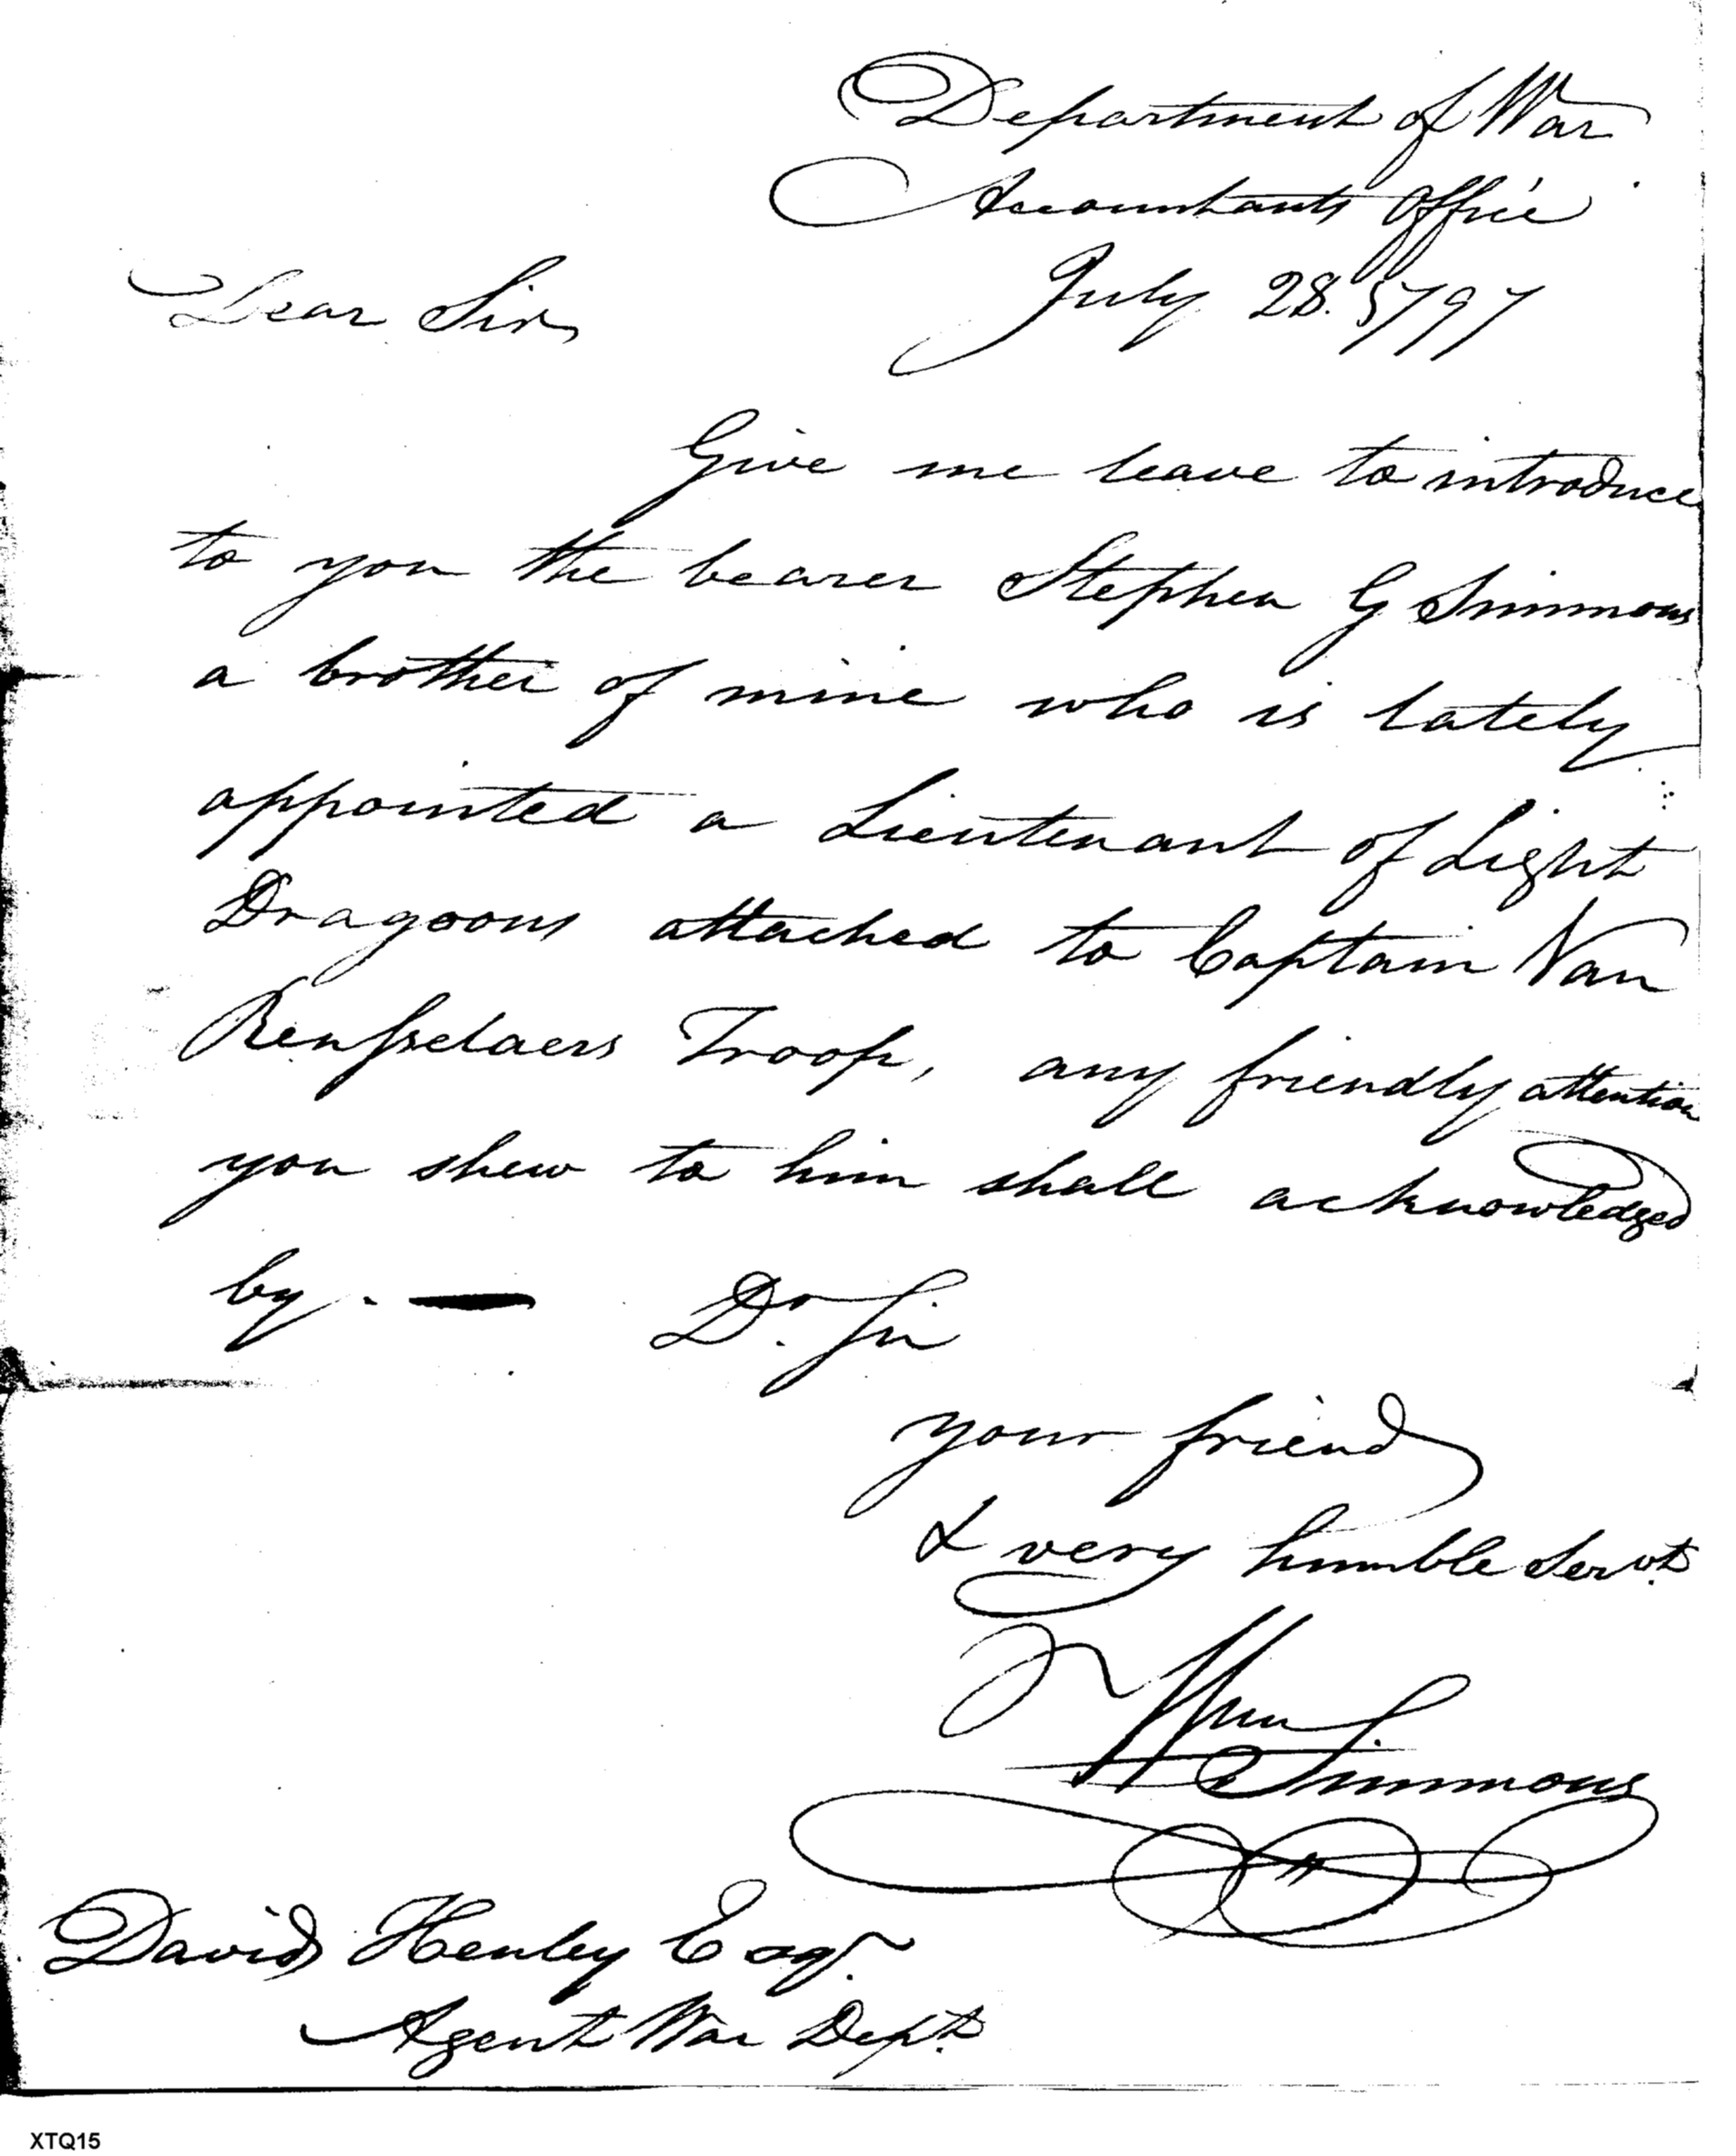 Department of War
Accountants Office
July 28. 1797
Dear Sir,
Give me leave to introduce
to you the bearer Stephen G Simmons
a brother of mine who is lately
appointed a Lieutenant of Light
Dragoons attached to Captain Van
Rensselaers Troop, any friendly attention
you shew to him shall acknowledged
by. — Dr. Sir
your friend
& very humble Servt.
Wm Simmons
David Henley Esqr.
Agent War Dept.
XTQ15